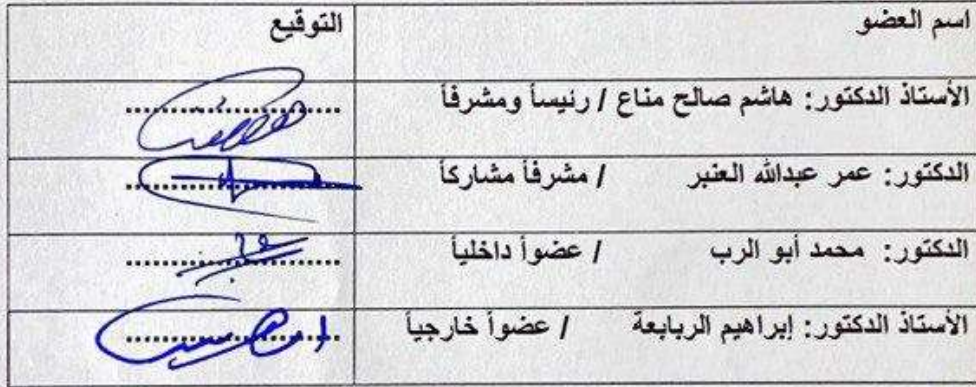 اسم العضو التوقيع
الأستاذ الدكتور: هاشم صالح مناع / رئيساً ومشرفاً
الدكتور: عمر عبدالله العنبر / مشرفاً مشاركاً
الدكتور: محمد أبو الرب / عضواً داخلياً
الأستاذ الدكتور: إبراهيم الربابعة / عضواً خارجياً